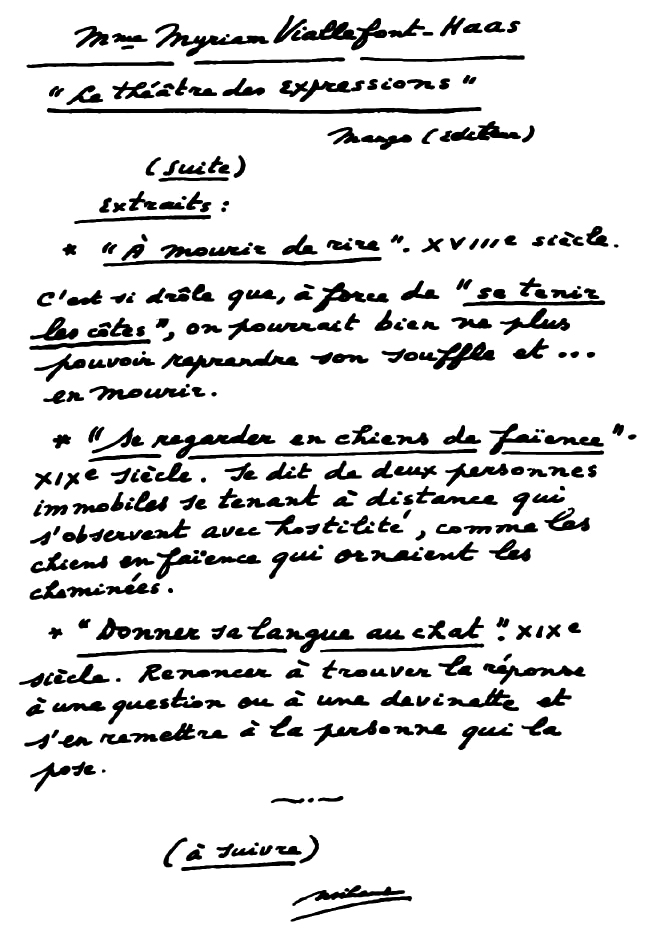 Mme Myriam Viallefont-Haas
"Le théâtre des expressions"
Mango (éditeur)
(suite)
Extraits :
* "À mourir de rire". XVIIIe siècle.
C'est si drôle que, à force de "se tenir
les côtes", on pourrait bien ne plus
pouvoir reprendre son souffle et ...
en mourir.
* "Se regarder en chiens de faïence".
XIXe siècle. Se dit de deux personnes
immobiles se tenant à distance qui
s'observent avec hostilité, comme les
chiens en faïence qui ornaient les
cheminées.
* "Donner sa langue au chat". XIXe
siècle. Renoncer à trouver la réponse
à une question ou à une devinette et
s'en remettre à la personne qui la
pose.
(à suivre)